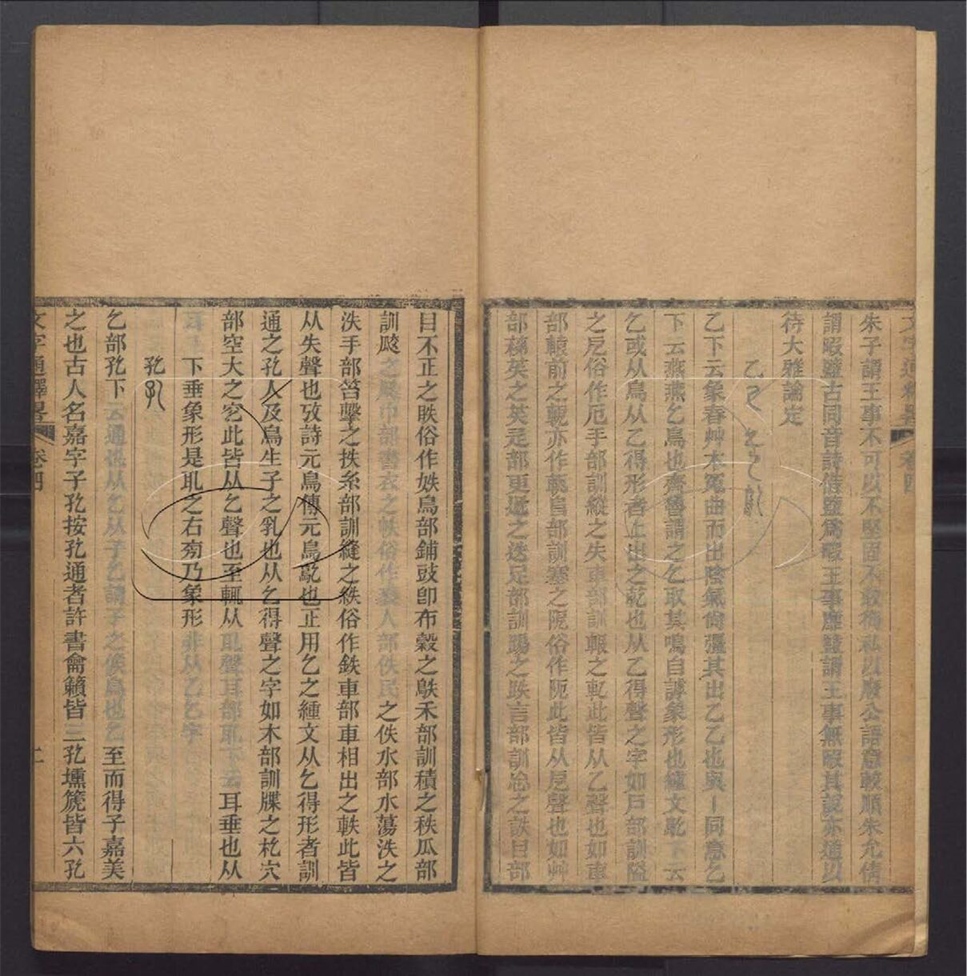 朱子謂王事不可以不堅固不敢徇私以廢公語意較順朱允倩
謂暇盬古同音詩借盬為暇王事靡盬謂王事無暇其說亦通以
待大雅論定
乙下云象春艸木冤曲而出陰氣尚彊其出乙乙也與丨同意乞
下云燕燕乞鳥也齊魯謂之乞取其鳴自謼象形也
乞或从鳥从乙得形者上出之乾也从乙得聲之字如戶部訓隘
之戹俗作厄手部訓縱之失車部訓輾之軋此皆从乙聲也如車
部轅前之軶亦作軛𨸏部訓塞之阸俗作阨此皆从戹聲也如艸
目不正之眣俗作妷鳥部鋪豉卽布穀之鴃禾部訓積之秩瓜部
訓㼭之瓞巾部書衣之帙俗作袠人部佚民之佚水部水蕩泆之
泆手部笞擊之抶糸部訓縫之紩俗作鉄車部車相出之軼此皆
从失聲也攷詩元鳥傳元鳥鳦也正用乞之緟文从乞得形者訓
通之孔人及鳥生子之乳也从乞得聲之字如木部訓牒之札穴
部空大之穵此皆从乞聲也至輒从耴聲耳部耴下云耳垂也从
耳下垂象形是耴之右旁乃象形非从乙乞字
孔
乞部孔下云通也从乞从子乞請子之候鳥也乞至而得子嘉美
之也古人名嘉字子孔按孔通者許書龠籟皆三孔壎箎皆六孔
文字通釋畧
卷四